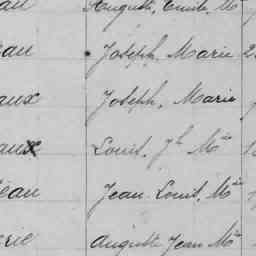 au Auguste, Emile, Mie
eau Joseph, Marie 2
aux Joseph, Marie
aux Louis, Jh Mie
eau Jean Louis, Mie
rie Auguste Jean Mie